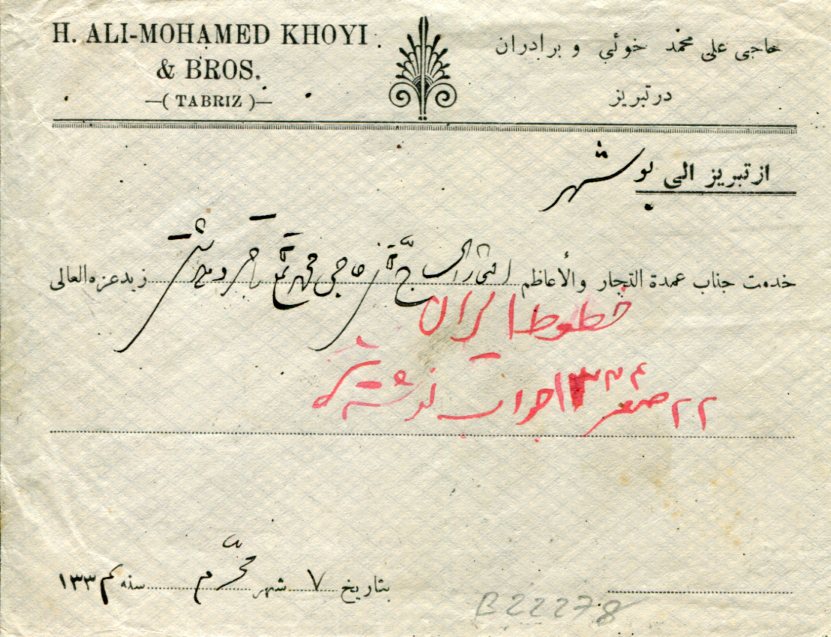 H. ALI-MOHAMED KHOYI
& BROS.
—( TABRIZ )—
حاجی علی محمد خوئی و برادران
در تبریز
از تبریز الی بوشهر
خدمت جناب عمدة التجار والأعاظم حاجی زید عزه العالی
خطوط ایران
۲۲ صفر ۱۳۳۴ جواب نوشته شد
بتاریخ ۷ شهر محرّم سنه ۱۳۳۴
B22278